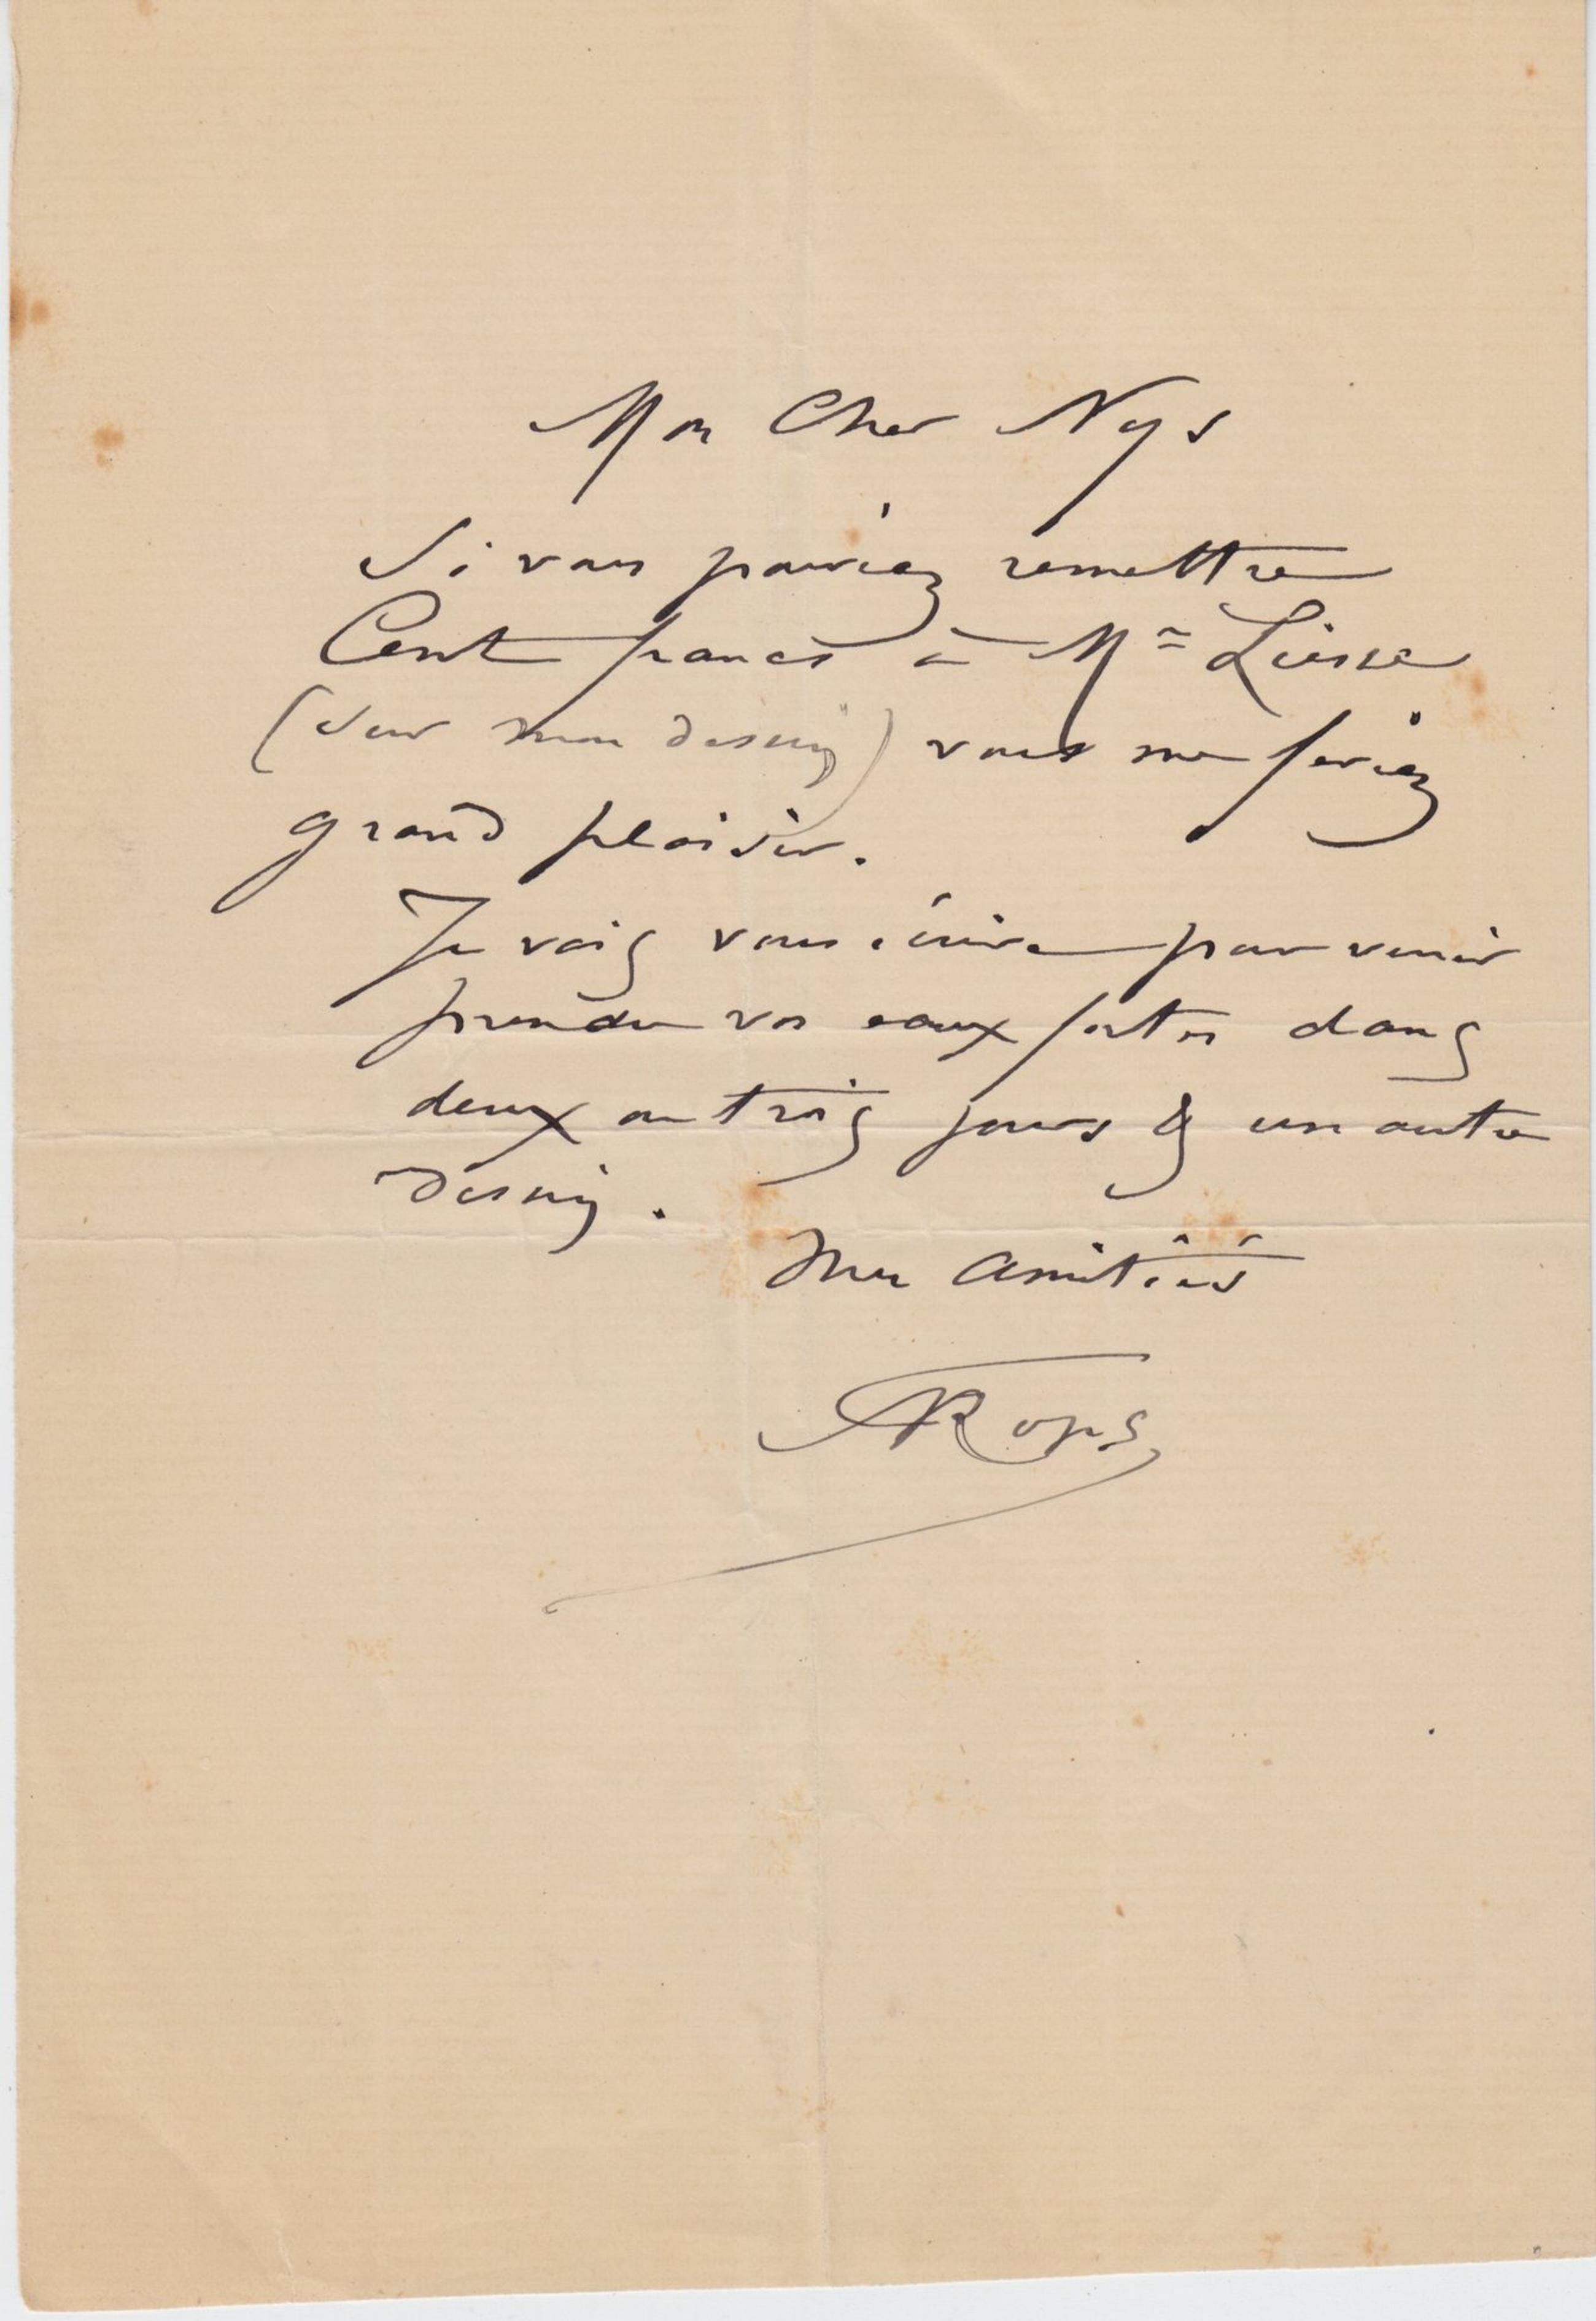 Mon Cher Nys
Si vous pouviez remettre
Cent francs à Mr Liesse
(sur mon dessin) vous me feriez
grand plaisir.
Je vais vous écrire pour venir
prendre vos eaux fortes dans
deux ou trois jours & un autre
dessin.
Mes amitiés
FRops